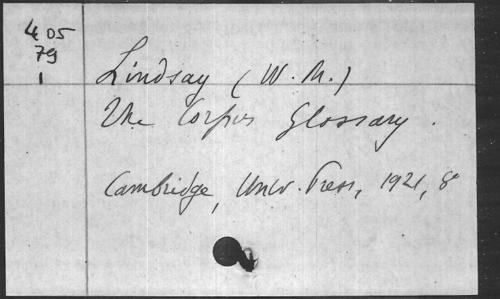 405
79
1
Lindsay (W. M.)
The Corpus Glossary.
Cambridge, Univ. Press, 1921, 8°